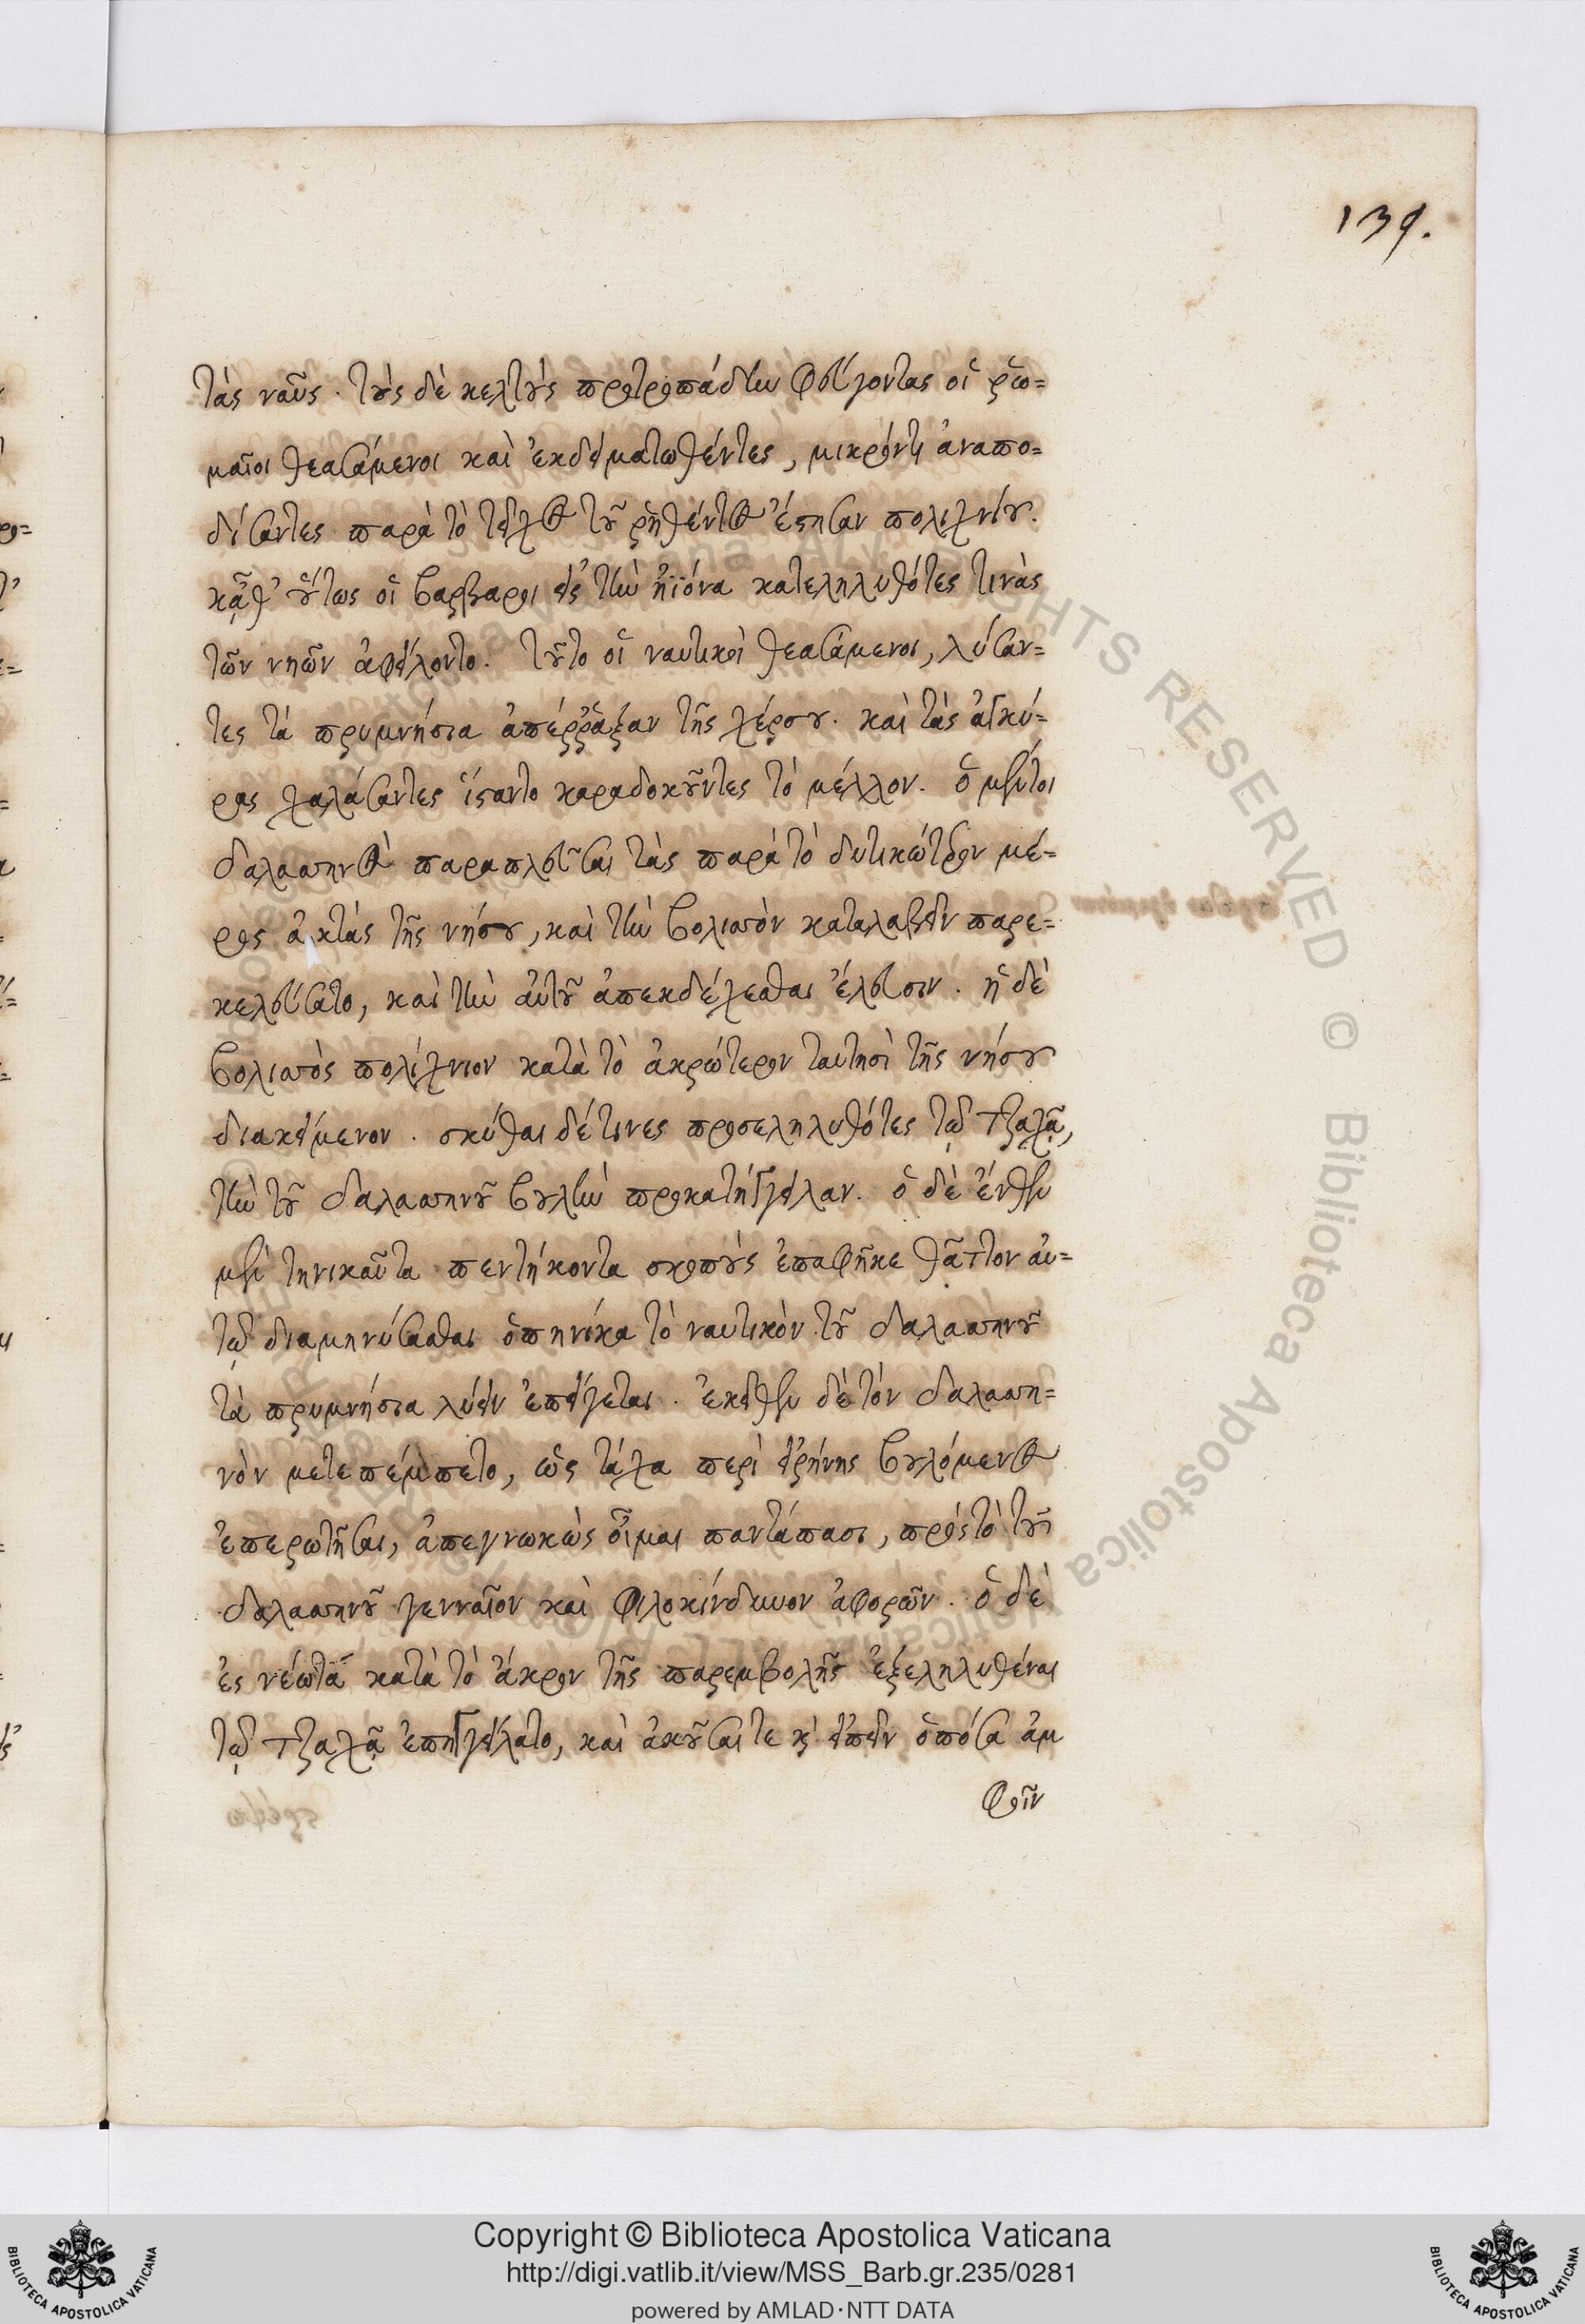 139.
τὰς ναῦς. τοὺς δὲ κελτοὺς προτροπάδην φεύγοντας οἱ ῥω=
μαῖοι θεασάμενοι καὶ ἐκδειματωθέντες, μικρόν τι ἀναπο=
δίσαντες παρὰ τὸ τεῖχος τοῦ ῥηθέντος ἔστησαν πολιχνίου.
κᾆθ' οὕτως οἱ βαρβαροι εἰς τὴν ἠϊόνα κατεληλυθότες τινὰς
τῶν νηῶν ἀφείλοντο. τοῦτο οἱ ναυτικοὶ θεασάμενοι, λύσαν=
τες τὰ πρυμνήσια ἀπέῤῥαξαν τῆς χέρσου. καὶ τὰς ἀγκύ=
ρας χαλάσαντες ἵσαντο καραδοκοῦντες τὸ μέλλον. ὁ μέντοι
δαλασηνὸς παραπλεῦσαι τὰς παρὰ τὸ δυτικώτερον μέ=
ρος ἀκτὰς τῆς νήσου, καὶ τὴν βολισσὸν καταλαβεῖν παρε=
κελεύσατο, καὶ τὴν αὐτοῦ ἀπεκδέχεσθαι ἔλευσιν. ἡ δὲ
βολισσὸς πολίχνιον κατὰ τὸ ἀκρώτερον ταυτησὶ τῆς νήσου
διακείμενον. σκύθαι δέ τινες προσεληλυθότες τῷ τζαχᾷ,
τὴν τοῦ δαλασσηνοῦ βουλὴν προκατήγγειλαν. ὁ δὲ ἔνθεν
μὲν τηνικαῦτα πεντήκοντα σκοποὺς ἐπαφῆκε θᾶττον αὐ=
τῷ διαμηνύσασθαι ὁπηνίκα τὸ ναυτικὸν τοῦ δαλασσηνοῦ
τὰ πρυμνήσια λύειν ἐπείγεται. ἐκεῖθεν δὲ τὸν δαλασση=
νὸν μετεπέμπετο, ὡς τάχα περὶ εἰρήνης βουλόμενος
ἐπερωτῆσαι, ἀπεγνωκὼς οἶμαι παντάπασι, πρὸς τὸ τοῦ
δαλασσηνοῦ γενναῖον καὶ φιλοκίνδυνον ἀφορῶν. ὁ δὲ
ἐς νέωτα κατὰ τὸ ἄκρον τῆς παρεμβολῆς ἐξεληλυθέναι
τῷ τζαχᾷ ἐπηγγείλατο, καὶ ἀκοῦσαι τε κ̀ εἰπεῖν ὁπόσα ἀμ
φοῖν
Copyright © Biblioteca Apostolica Vaticana
http://digi.vatlib.it/view/MSS_Barb.gr.235/0281
powered by AMLAD·NTT DATA
BIBLIOTECA APOSTOLICA VATICANA
BIBLIOTECA APOSTOLICA VATICANA